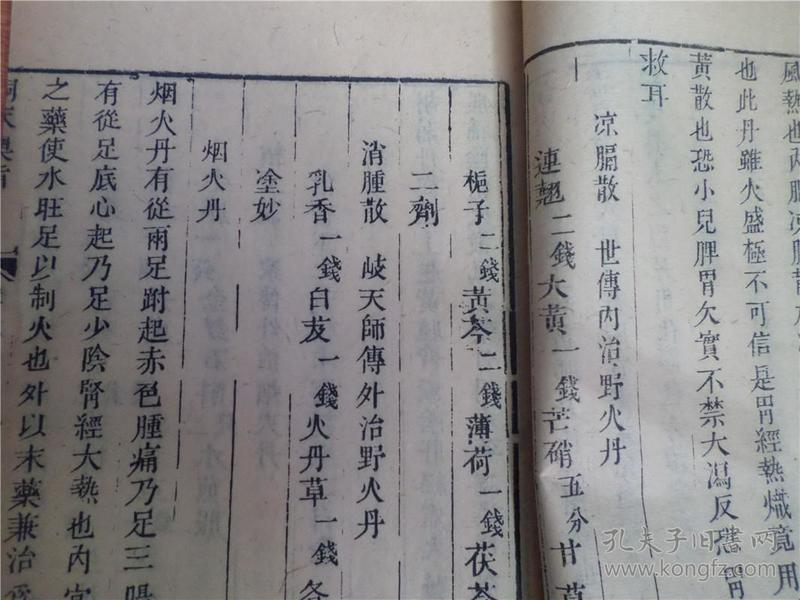 風熱也內服涼膈散
也此丹雖火盛極不可信是胃經熱熾竟用
黃散也恐小兒脾胃欠實不禁大瀉反
救耳
凉膈散 世傳內治野火丹
連翹二錢大黃一錢芒硝五分甘草
梔子二錢黃芩二錢薄荷一錢茯苓
二劑
消腫散 岐天師傳外治野火丹
乳香一錢白芨一錢火丹草一錢各
塗妙
烟火丹
烟火丹有從兩足跗起赤色腫痛乃足三陽
有從足底心起乃足少陰腎經大熱也內宜
之藥使水旺足以制火也外以末藥兼治
洞天奧旨
孔夫子旧书网
www.kongfz.com